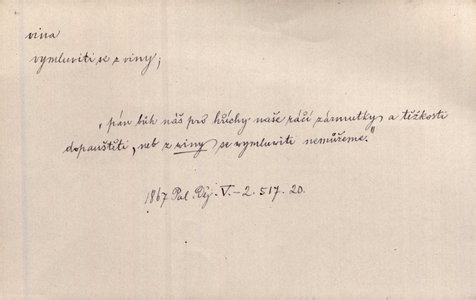 vina
vymluviti se z viny;
„pán bůh náš pro hříchy naše ráčí zármutky a těžkosti
dopouštěti, neb z viny se vymluviti nemůžeme."
1867 Pal. Děj. V.-2. 517. 20.